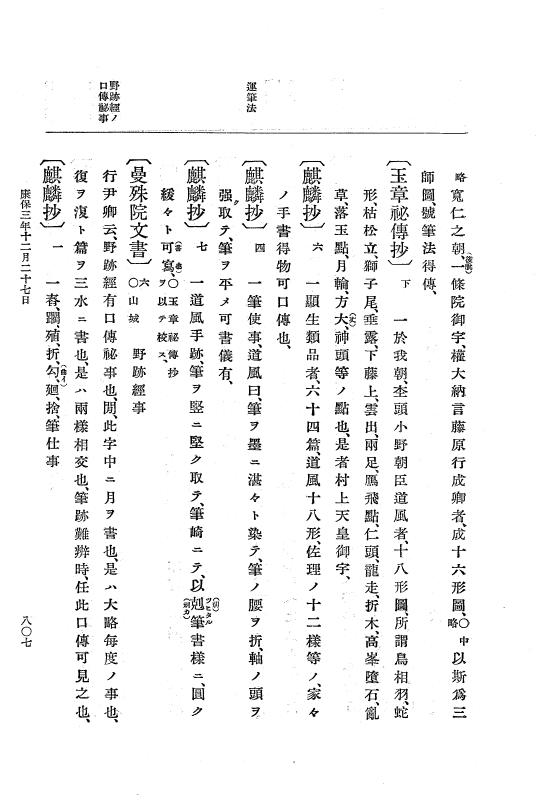 略寬仁之朝、一條院御宇、權大納言藤原行成卿者、成十六形圖、○中略以斯爲三
(後脱)
師圖、號筆法得傳、
〔玉章祕傳抄〕下 一於我朝、杢頭小野朝臣道風者、十八形圖、所謂鳥相羽、蛇
形、枯松立、獅子尾、垂露、下藤上、雲出、兩足、鴈飛點、仁頭、龍走、折木、高峯墮石、亂
草、落玉點、月輪、方大、神頭等ノ點也、是者村上天皇御字、
運筆法
〔麒麟抄〕六 一顯生類品者、六十四篇、道風十八形、佐理ノ十二樣等ノ、家々
ノ手書得物可口傳也、
〔麒麟抄〕四 一筆使事、道風曰、筆ヲ墨ニ湛々ト染テ、筆ノ腰ヲ折、軸ノ頭ヲ
强ク取テ、筆ヲ平メ可書儀有、
〔麒麟抄〕七 一道風手跡、筆ヲ竪ニ堅ク取テ、筆崎ニテ、以剋筆書樣ニ、圓ク
ツヒタル
緩々ト可寫、○玉章祕傳抄ヲ以テ校ス、
野跡經ノ
口傳祕事
〔曼殊院文書〕六○山城 野跡經事
行尹卿云、野跡經有口傳祕事也、閒、此字中ニ月ヲ書也、是ハ大略每度ノ事也、
復ヲ澓ト篇ヲ三水ニ書也、是ハ兩樣相交也、筆跡難辨時、任此口傳可見之也、
〔麒麟抄〕一 一春、蹋、殖、折、勾、廻、捨、筆仕事
康保三年十二月二十七日
八〇七